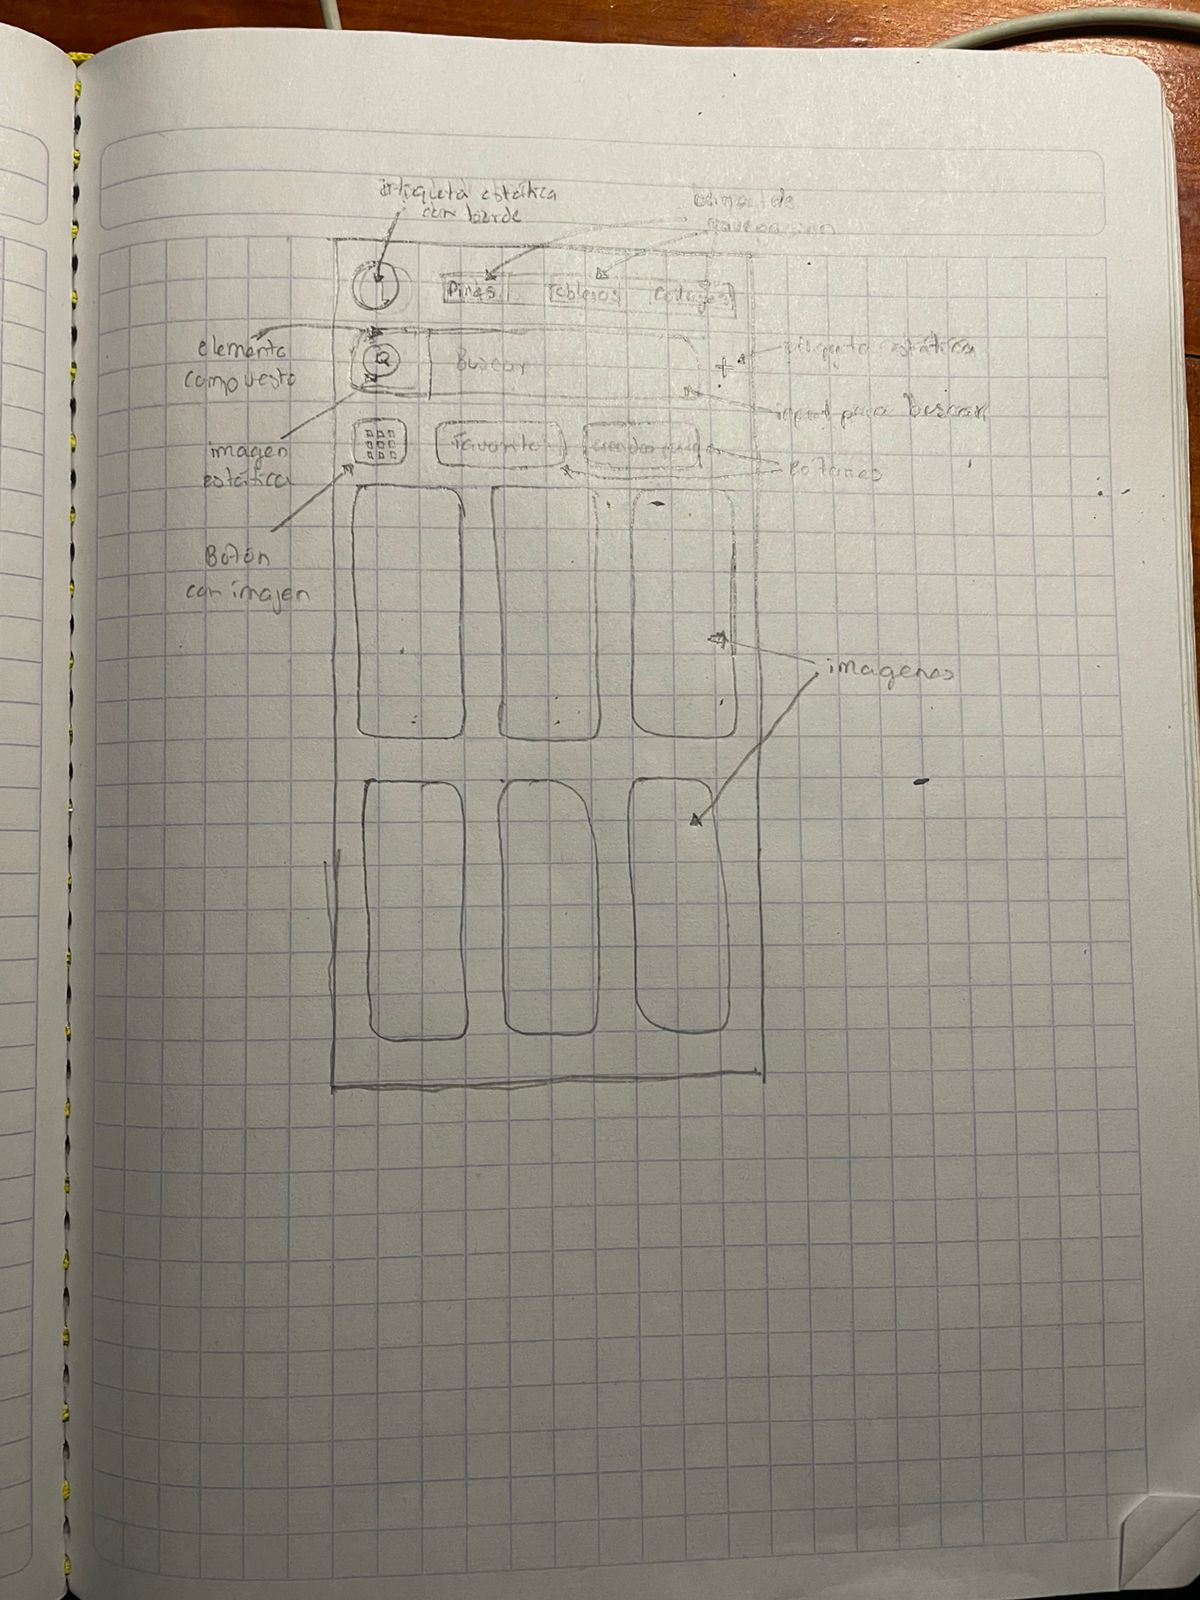 etiqueta estática
con borde
navegacion
L
Pines
Tableros
Collages
elemento
compuesto
Buscar
+
etiqueta estática
input para buscar
imagen
estática
Favorito
Botones
Botón
con imajen
imagenes